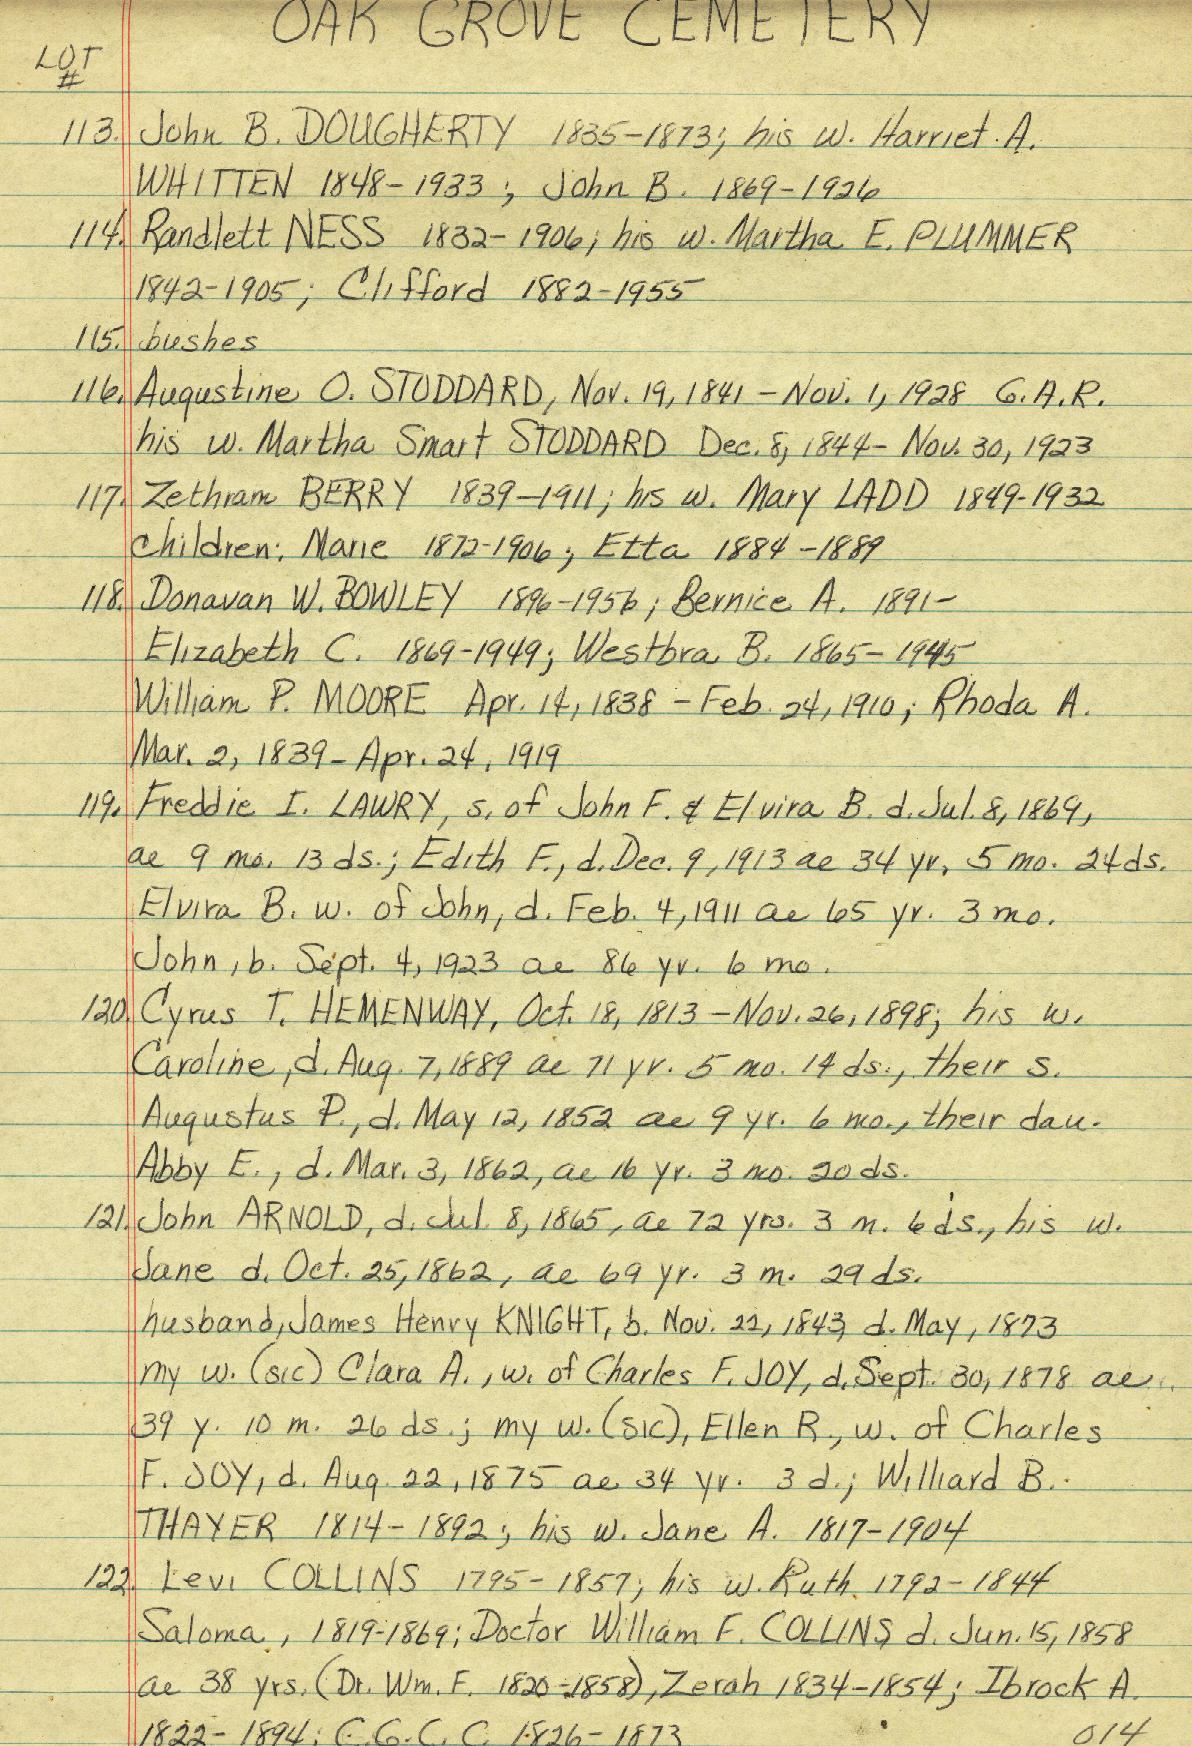 OAK GROVE CEMETERY
LOT
#
113. John B. DOUGHERTY 1835-1873; his w. Harriet A.
WHITTEN 1848-1933; John B. 1869-1926
114. Randlett NESS 1832-1906; his w. Martha E. PLUMMER
1842-1905; Clifford 1882-1955
115. bushes
116. Augustine O. STODDARD, Nov. 19, 1841 - Nov. 1, 1928 G.A.R.
his w. Martha Smart STODDARD Dec. 8, 1844- Nov. 30, 1923
117. Zethram BERRY 1839-1911; his w. Mary LADD 1849-1932
children: Marie 1872-1906; Etta 1884-1889
118. Donavan W. BOWLEY 1896-1956; Bernice A. 1891-
Elizabeth C. 1869-1949; Westbra B. 1865-1945
William P. MOORE Apr. 14, 1838 - Feb. 24, 1910; Rhoda A.
Mar. 2, 1839- Apr. 24, 1919
119. Freddie I. LAWRY, s. of John F. & Elvira B. d. Jul. 8, 1869,
ae 9 mo. 13 ds.; Edith F., d. Dec. 9, 1913 ae 34 yr. 5 mo. 24 ds.
Elvira B. w. of John, d. Feb. 4, 1911 ae 65 yr. 3 mo.
John, b. Sept. 4, 1923 ae 86 yr. 6 mo.
120. Cyrus T. HEMENWAY, Oct. 18, 1813 - Nov. 26, 1898; his w.
Caroline, d. Aug. 7, 1889 ae 71 yr. 5 mo. 14 ds., their s.
Augustus P., d. May 12, 1852 ae 9 yr. 6 mo., their dau.
Abby E., d. Mar. 3, 1862, ae 16 yr. 3 mo. 20 ds.
121. John ARNOLD, d. Jul 8, 1865, ae 72 yrs. 3 m. 6 ds., his w.
Jane d. Oct. 25, 1862, ae 69 yr. 3 m. 29 ds.
husband, James Henry KNIGHT, b. Nov. 22, 1843, d. May, 1873
my w. (sic) Clara A., w. of Charles F. JOY, d. Sept. 30, 1878 ae
39 y. 10 m. 26 ds.; my w. (sic), Ellen R., w. of Charles
F. JOY, d. Aug. 22, 1875 ae 34 yr. 3 d.; Williard B.
THAYER 1814-1892; his w. Jane A. 1817-1904
122. Levi COLLINS 1795-1857; his w. Ruth 1792-1844
Saloma, 1819-1869; Doctor William F. COLLINS d. Jun. 15, 1858
ae 38 yrs. (Dr. Wm. F. 1820-1858), Zerah 1834-1854; Ibrock A.
1822-1894; C.G.C.C. 1826-1873
014